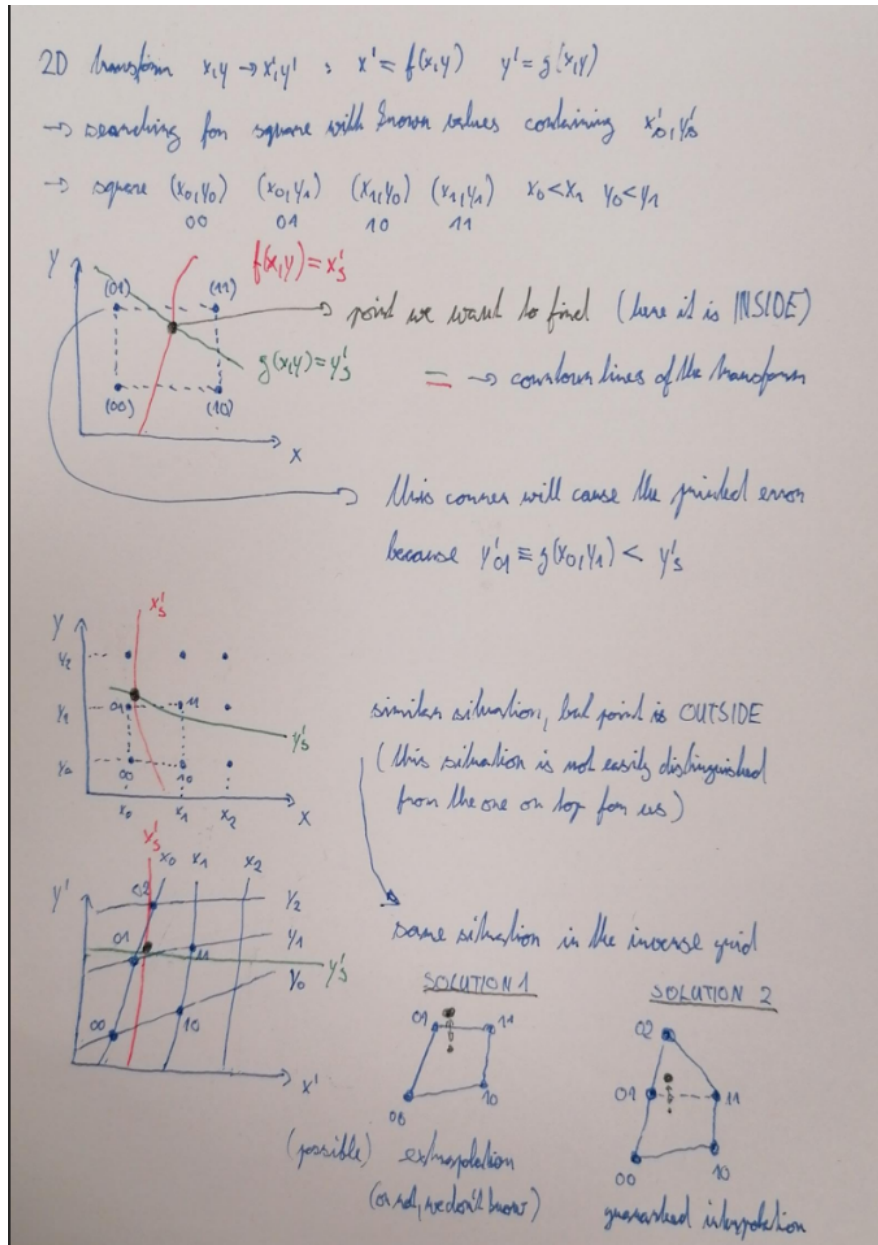 2D transform x,y → x',y' : x' = f(x,y) y' = g(x,y)
→ searching for square with known values containing x's, y's
→ square (x0,y0) (x0,y1) (x1,y0) (x1,y1) x0<x1 y0<y1
00 01 10 11
y
f(x,y) = x's
(01) (11)
→ point we want to find (here it is INSIDE)
g(x,y) = y's
= → contour lines of the transform
(00) (10)
x
this corner will cause the printed error
because y'01 ≡ g(x0,y1) < y's
x's
y
y2
y1 01 11
y's
y0 00 10
x0 x1 x2 x
similar situation, but point is OUTSIDE
(this situation is not easily distinguished
from the one on top for us)
x's x0 x1 x2
y' 02 y2
01 11 y1
y's
y0
00 10
x'
same situation in the inverse grid
SOLUTION 1
01 11
00 10
(possible) extrapolation
(or not, we don't know)
SOLUTION 2
02
01 11
00 10
guaranteed interpolation